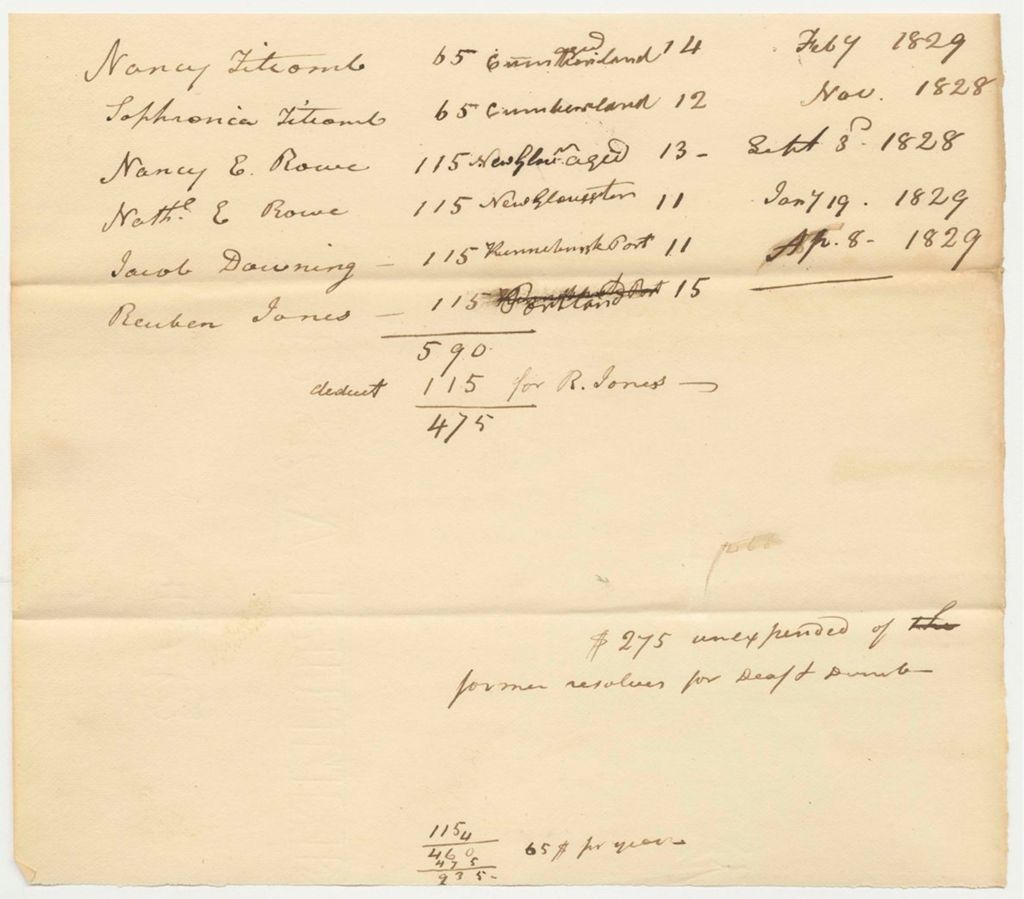 Nancy Titcomb 65 Cumberland aged 14 Feby 1829
Sophronia Titcomb 65 Cumberland 12 Nov. 1828
Nancy E. Rowe 115 New Glour. aged 13 - Sept 3d. 1828
Nathl. E Rowe 115 New Gloucester 11 Jany 19. 1829
Jacob Downing - 115 Kennebunk Port 11 Ap. 8 - 1829
Reuben Jones - 115 Portland 15
590
deduct 115 for R. Jones -
475
$ 275 unexpended of the
former resolves for Deaf & Dumb
115
4
460 65 $ pr year
475
935-